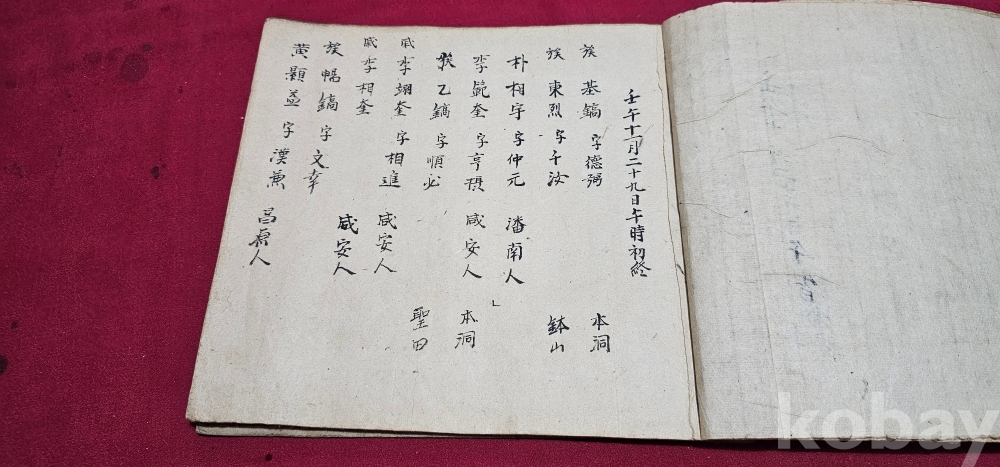 壬午十一月二十九日午時初終
族 基鎬 字德弼 本洞
族 東烈 字千汝 鉢山
朴相宇 字仲元 潘南人
李範奎 字亨 咸安人 本洞
族 乙鎬 字順必 聖田
戚 李翊奎 字相進 咸安人
戚 李相奎 咸安人
族 幅鎬 字文幸
黃顯益 字漢兼 昌原人
kobay